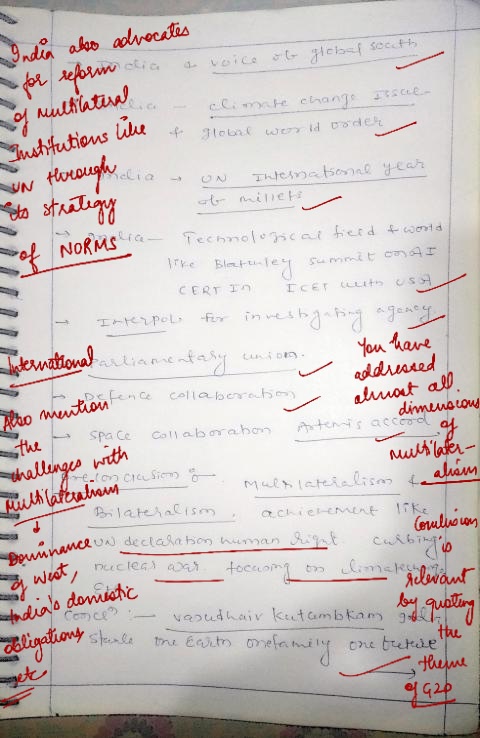 India also advocates
for reform
of Multilateral
Institutions like
UN through
its strategy
of NORMS
India & voice of global south
India - climate change Issue
+ global world order
India → UN International year
of millets
→ India - Technological field & world
like Bletchley summit on AI
CERT In ICET with USA
→ Interpol for investigating agency.
International
Parliamentary union.
→ Defence collaboration
→ Space collaboration Artemis accord
You have
addressed
almost all
dimensions
of
Multilater-
alism
Also mention
the
challenges with
Multilateralism
↓
Dominance
of West,
India's domestic
obligations
etc
Preconclusion :- Multilateralism &
Bilateralism, achievement like
UN declaration human right. curbing
nuclear war. focusing on climate
Conc :- vasudhaiv Kutumbkam
one Earth one family one future
Conclusion
is
relevant
by quoting
the
theme
of G20